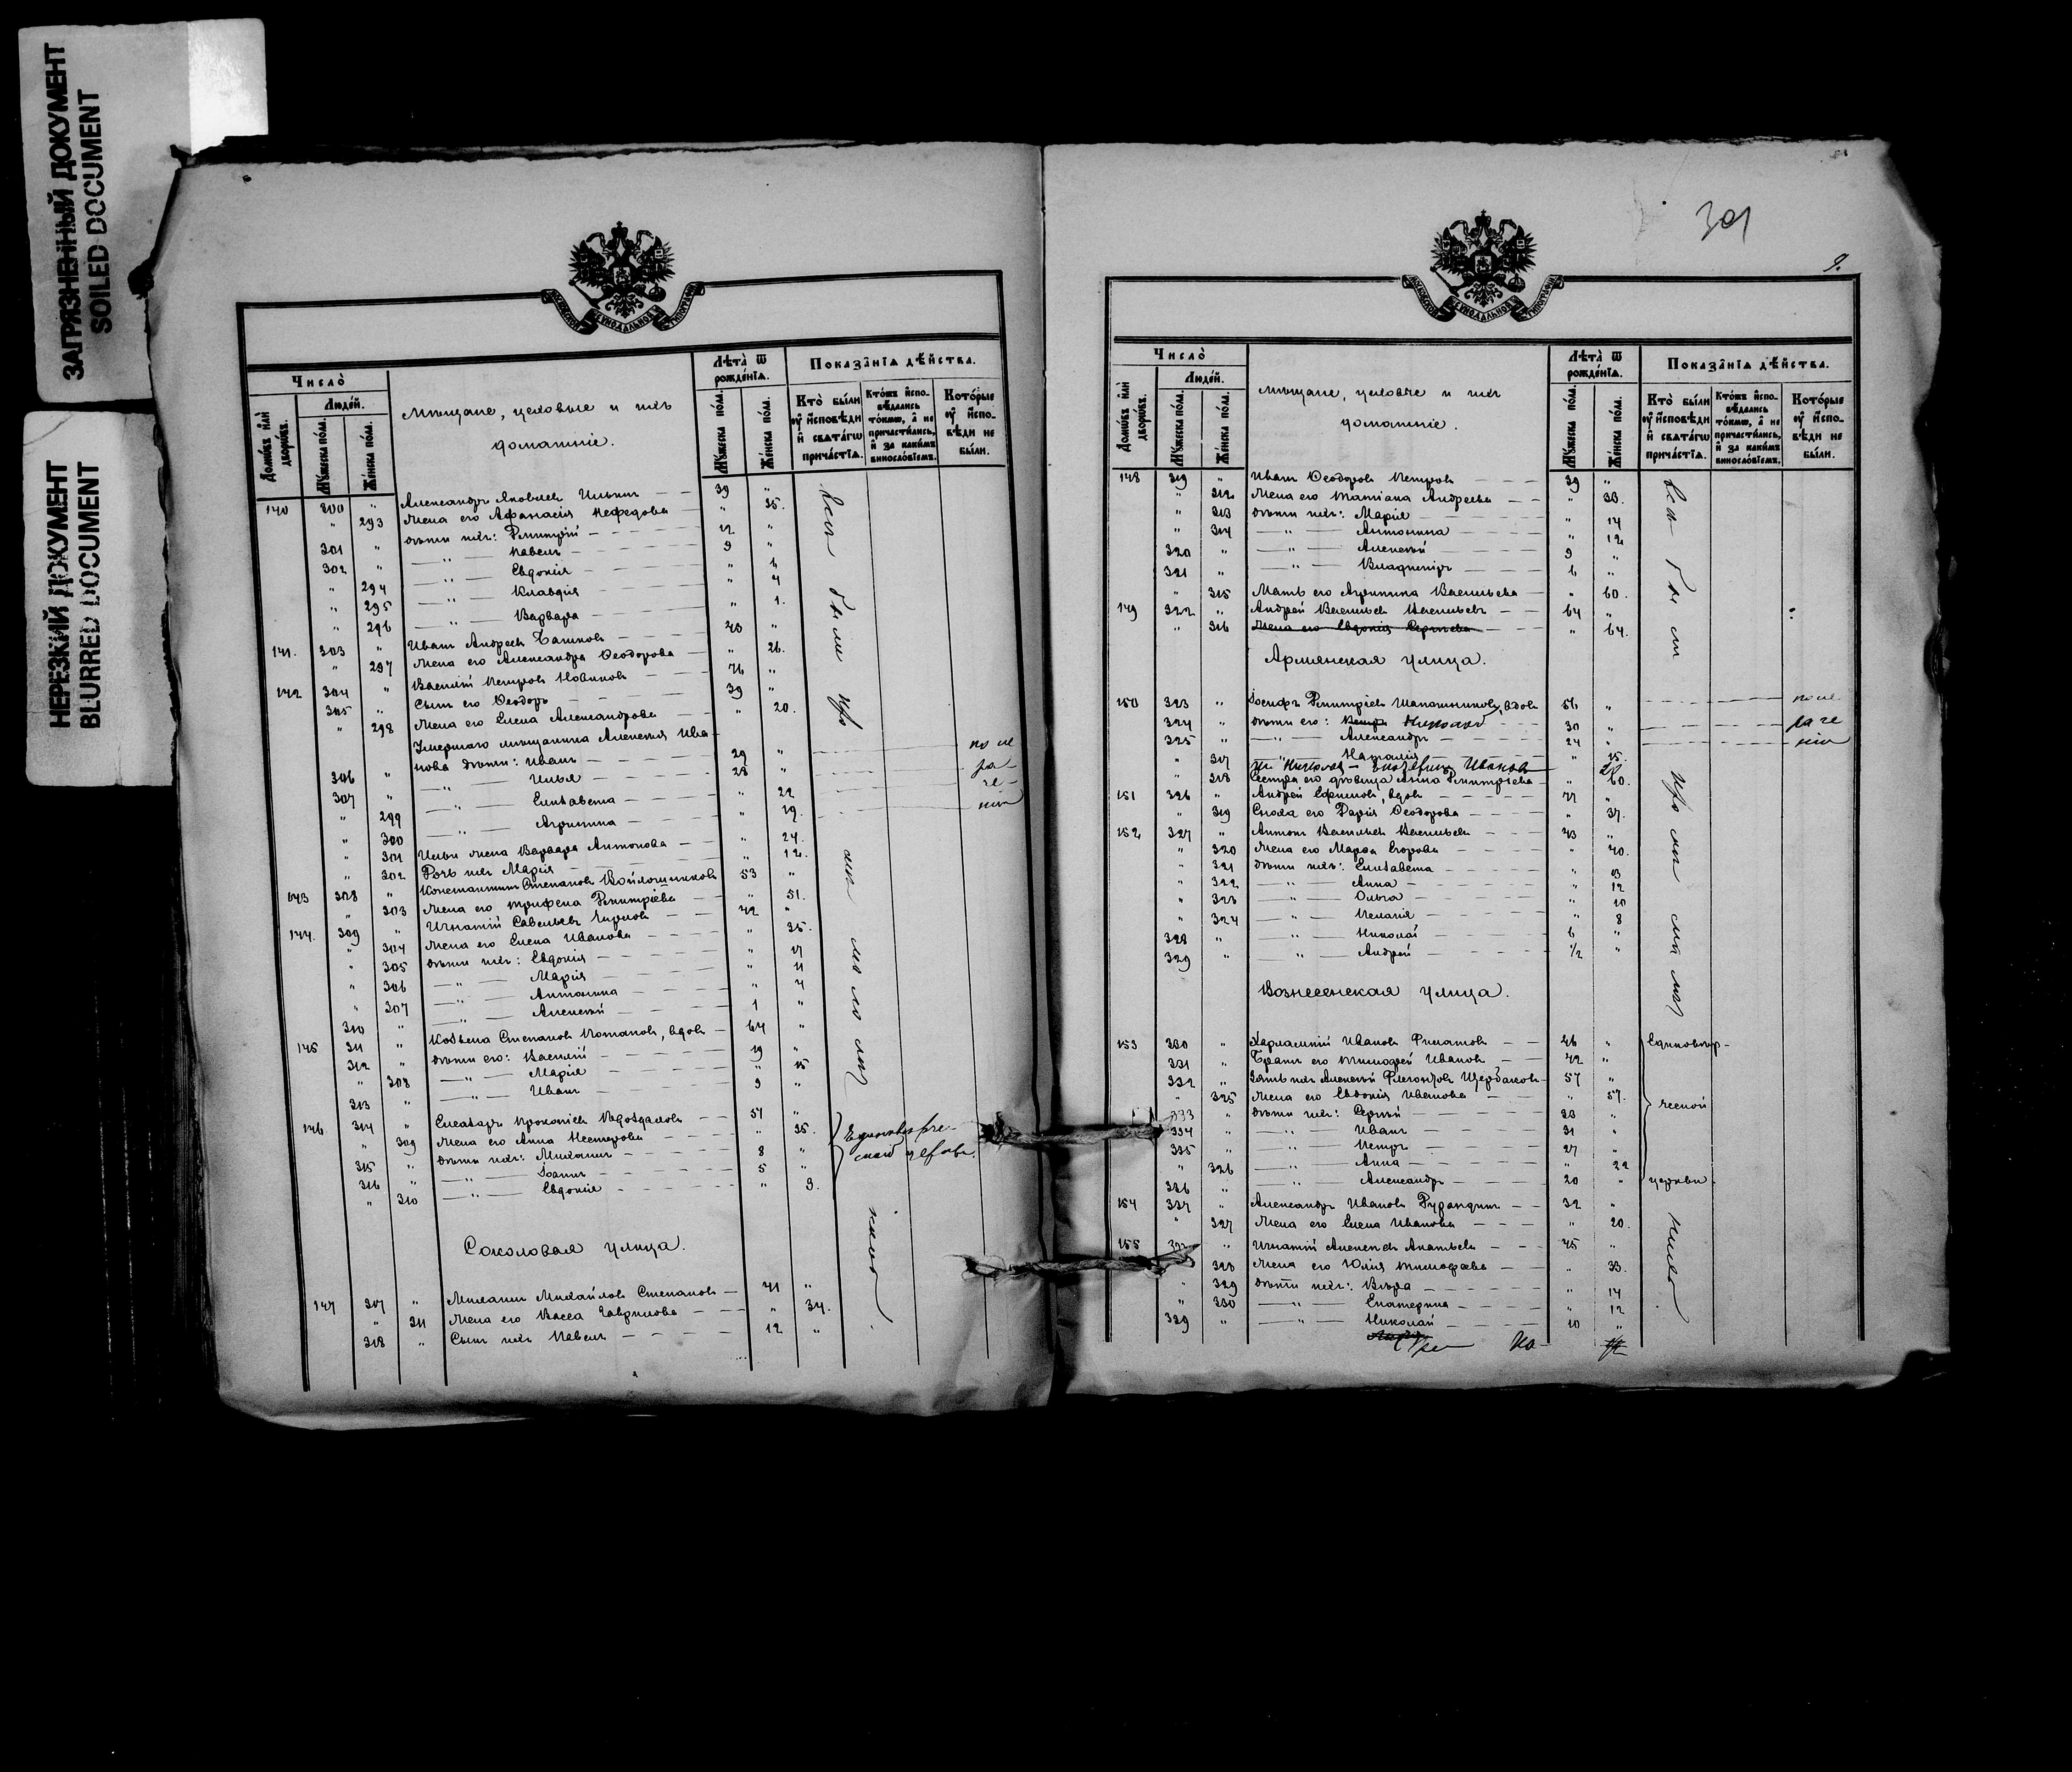 ЗАГРЯЗНЕННЫЙ ДОКУМЕНТ
SOILED DOCUMENT
НЕРЕЗКИЙ ДОКУМЕНТ
BLURRED DOCUMENT
Число̀
Домо́въ и҆лѝ дворѡ́въ.
Люде́й.
Мꙋ́жеска по́ла.
Же́нска по́ла.
Мѣщане, цеховые и ихъ
домашніе.
Лѣта̀ ѿ рожде́нїѧ.
Мꙋ́жеска по́ла.
Же́нска по́ла.
Показа̑нїѧ дѣ́йства.
Кто̀ бы́ли ᲂу҆ и҆сповѣ́ди и҆ свѧта́гѡ прича́стїѧ.
Кто́жъ и҆спо- вѣ́дались то́кмѡ, а҆ не причасти́лись, и҆ за каки́мъ винослѡ́вїемъ.
Кото́рые ᲂу҆ и҆спо- вѣ́ди не бы́ли.
140 300 " Александръ Яковлевъ Ильинъ 39 "
" 293 Жена его Афанасія Нефедова " 35.
301 " Дѣти ихъ: Димитрій 12 "
302 " Павелъ 9 "
" 294 Евдокія " 6
" 295 Клавдія " 4
" 296 Варвара " 1.
141. 303 " Иванъ Андреевъ Башковъ 40 "
" 297 Жена его Александра Ѳеодорова " 26.
142 304 " Василій Петровъ Новиковъ 76 "
305 " Сынъ его Ѳеодоръ 39 "
" 298 Жена его Елена Александрова " 20.
Умершаго мѣщанина Алексѣя Ива-
306 " нова дѣти: Иванъ 29 " по не
307 " Илья 28 " ра-
" 299 Елисавета " 22 че-
" 300 Агрипина " 19. нію
" 301 Ильи жена Варвара Антонова " 24.
" 302 Дочь ихъ Марія " 12.
143 308 " Константинъ Степановъ Войлошниковъ 53 "
" 303 Жена его Трифена Димитріева " 51.
144. 309 " Игнатій Савельевъ 42 "
" 304 Жена его Елена Иванова " 35.
" 305 Дѣти ихъ: Евдокія " 17
" 306 Марія " 11
" 307 Антонина " 4
310 " Алексѣй 1 "
145 311 " Козьма Степановъ Потаповъ, вдовъ 64 "
312 " Дѣти его: Василій 19 "
" 308 Марія " 15
313 " Иванъ 9 "
146 314 " Елеазаръ Прокопіевъ 51 "
" 309 Жена его Анна Нестерова " 35.
315 " Дѣти ихъ: Михаилъ 8 "
316 " Іоаннъ 5 "
" 310 Евдокія " 9.
Соколовая улица.
147 317 " Михаилъ Михайловъ Степановъ 41 "
" 311 Жена его Васса Гаврилова " 34.
318 " Сынъ ихъ Павелъ 12 "
301
9.
Число̀
Домо́въ и҆лѝ дворѡ́въ.
Люде́й.
Мꙋ́жеска по́ла.
Же́нска по́ла.
Мѣщане, цеховые и ихъ
домашніе.
Лѣта̀ ѿ рожде́нїѧ.
Мꙋ́жеска по́ла.
Же́нска по́ла.
Показа̑нїѧ дѣ́йства.
Кто̀ бы́ли ᲂу҆ и҆сповѣ́ди и҆ свѧта́гѡ прича́стїѧ.
Кто́жъ и҆спо- вѣ́дались то́кмѡ, а҆ не причасти́лись, и҆ за каки́мъ винослѡ́вїемъ.
Кото́рые ᲂу҆ и҆спо- вѣ́ди не бы́ли.
148 319 " Иванъ Ѳеодоровъ Петровъ 39 "
" 312 Жена его Татіана Андреева " 38.
" 313 Дѣти ихъ: Марія " 14
" 314 Антонина " 12
320 " Алексѣй 9 "
321 " Владиміръ 6 "
" 315 Мать его Агрипина Васильева " 60.
149 322 " Андрей Васильевъ Васильевъ 64 "
" 316 Жена его Евдокія Сергѣева " 64.
Армянская улица.
150 323 " Іосифъ Димитріевъ Шапошниковъ, вдовъ 56 " по не
324 " Дѣти его: Петръ Николай 30 " раче
325 " Александръ 24 " нію
" 317 Наталія " 15.
" 318 Сестра его дѣвица Анна Димитріева " 60.
151 326 " Андрей Ефимовъ, вдовъ 77 "
" 319 Сноха его Дарія Ѳеодорова " 37.
152 327 " Антонъ Васильевъ Васильевъ 43 "
" 320 Жена его Марѳа Егорова " 40.
" 321 Дѣти ихъ: Елисавета " 13
" 322 Анна " 12
" 323 Ольга " 10
" 324 Пелагія " 8
328 " Николай 6 "
329 " Андрей 1/2 "
Вознесенская улица.
153 330 " Харлампій Ивановъ Филатовъ 46 " Единовѣр-
331 " Братъ его Тимоѳей Ивановъ 42 "
332 " Зять ихъ Алексѣй Флегонтовъ Щербаковъ 57 "
" 325 Жена его Евдокія Иванова " 57. ческой
333 " Дѣти ихъ: Сергѣй 33 "
334 " Иванъ 31 "
335 " Петръ 27 "
" 326 Анна " 22
336 " Александръ 20 " церкви.
154 337 " Александръ Ивановъ 32 "
" 327 Жена его Елена Иванова " 20.
155 " Игнатій Алексѣевъ Анатьевъ 45 "
328 Жена его Юлія Тимоѳеева " 33.
" 329 Дѣти ихъ: Вѣра " 14
" 330 Екатерина " 12
339 " Николай 10 "